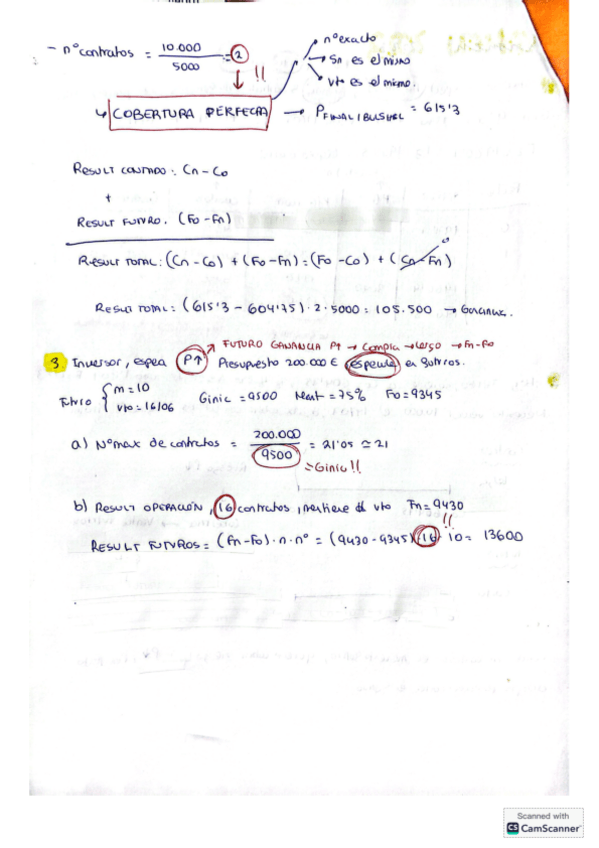 - nº contratos = 10.000 / 5000 = 2 !!
nº exacto
Sn es el mismo
Vto es el mismo.
↳ COBERTURA PERFECTA → P FINAL / BUSHEL = 615'3
RESULT CONTADO: Cn - Co
+
RESULT FUTURO. (Fo - Fn)
RESULT TOTAL: (Cn - Co) + (Fo - Fn) = (Fo - Co) + (Cn - Fn) 0
RESULT TOTAL: (615'3 - 604'75) · 2 · 5000 = 105.500 → Ganancia.
FUTURO GANANCIA P↑ → Compra → Largo → Fn - Fo
3 Inversor, espera P↑ Presupuesto 200.000 € especula en futuros.
Futuro { m = 10 Vto = 16/06 Ginic = 9500 Mant = 75% Fo = 9345
a) Nº max de contratos = 200.000 / 9500 = 21'05 ≃ 21
= Ginic !!
b) RESULT OPERACIÓN, 16 contratos, mantiene al vto Fn = 9430
!!
RESULT FUTUROS = (Fn - Fo) · n · nº = (9430 - 9345) 16 · 10 = 13600
Scanned with
CS CamScanner